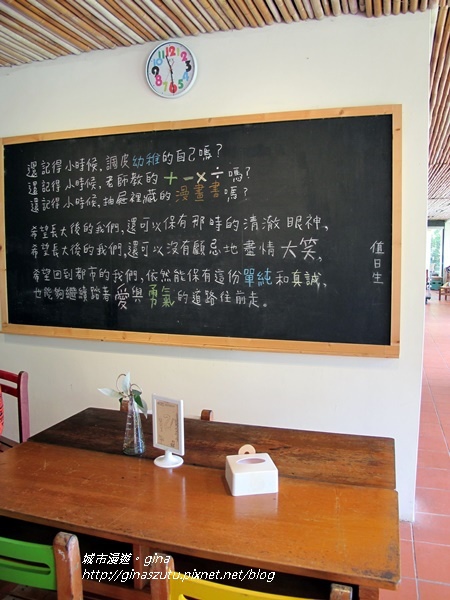 還記得小時候,調皮幼稚的自己嗎?
還記得小時候,老師教的+-×÷嗎?
還記得小時候,抽屜裡藏的漫畫書嗎?
希望長大後的我們,還可以保有那時的清澈眼神,
希望長大後的我們,還可以沒有顧忌地盡情大笑,
希望回到都市的我們,依然能保有這份單純和真誠,
也能夠繼續踏著愛與勇氣的道路往前走。
值日生
城市漫遊。gina
http://ginaszutu.pixnet.net/blog